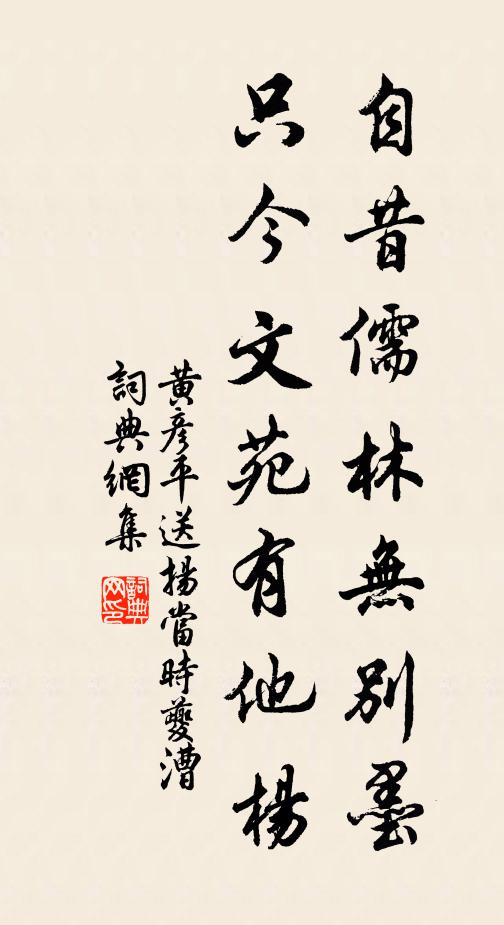 自昔儒林無別墨
只今文苑有他楊
黃彥平送揚當時夔漕
詞典網集
詞典網印